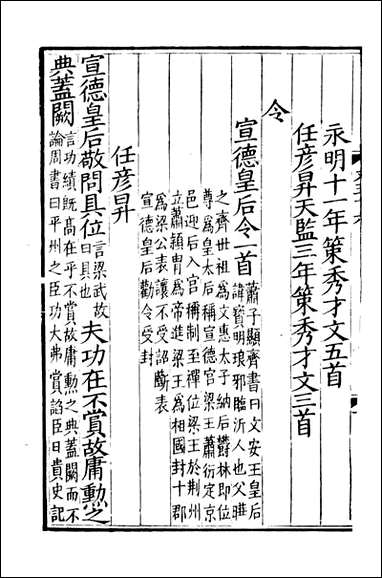 永明十一年策秀才文五首
任彥昇天監三年策秀才文三首
令
宣德皇后令一首
蕭子顯齊書曰文安王皇后
諱寶明琅邪臨沂人也父曄
之齊世祖爲文惠太子納后欝林即位
尊爲皇太后稱宣德宮梁王蕭衍定京
邑迎后入宮稱制至禪位梁王於荆州
立蕭穎胄爲帝進梁王爲相國封十郡
爲梁公表讓不受詔斷表
宣德皇后勸令受封
任彥昇
宣德皇后敬問具位
言梁武故
曰具也
夫功在不賞故庸勳之
典蓋闕
言功績既高在乎不賞故庸勳之典蓋闕而不
論周書曰平州之臣功大弗賞諂臣日貴史記